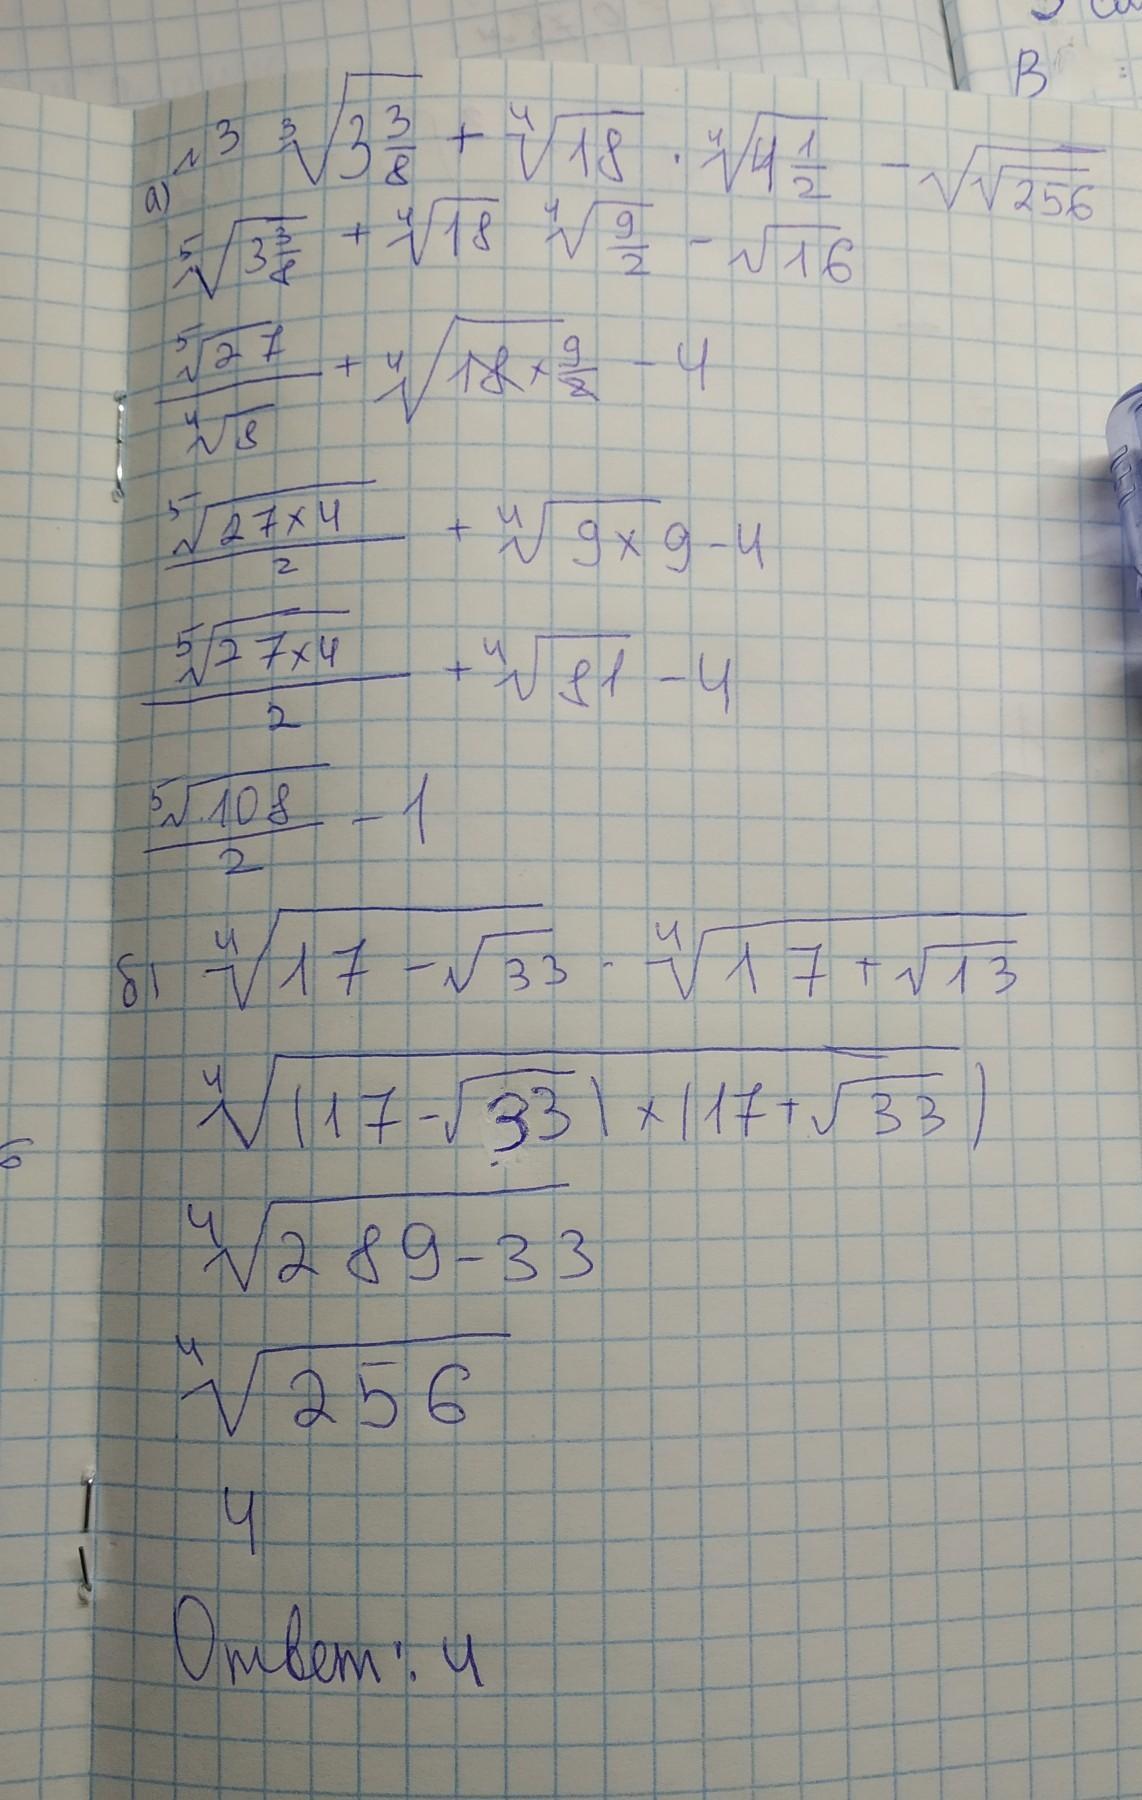 В
№3 ∛(3 3/8) + ∜18 · ∜(4 1/2) - √√256
а)
⁵√(3 3/8) + ∜18 ∜(9/2) - √16
⁵√27/∜8 + ∜(18 × 9/2) - 4
⁵√(27×4)/2 + ∜(9×9) - 4
⁵√(27×4)/2 + ∜81 - 4
⁵√108/2 - 1
б) ∜(17 - √33) · ∜(17 + √13)
∜((17 - √33) × (17 + √33))
∜(289 - 33)
∜256
4
Ответ: 4